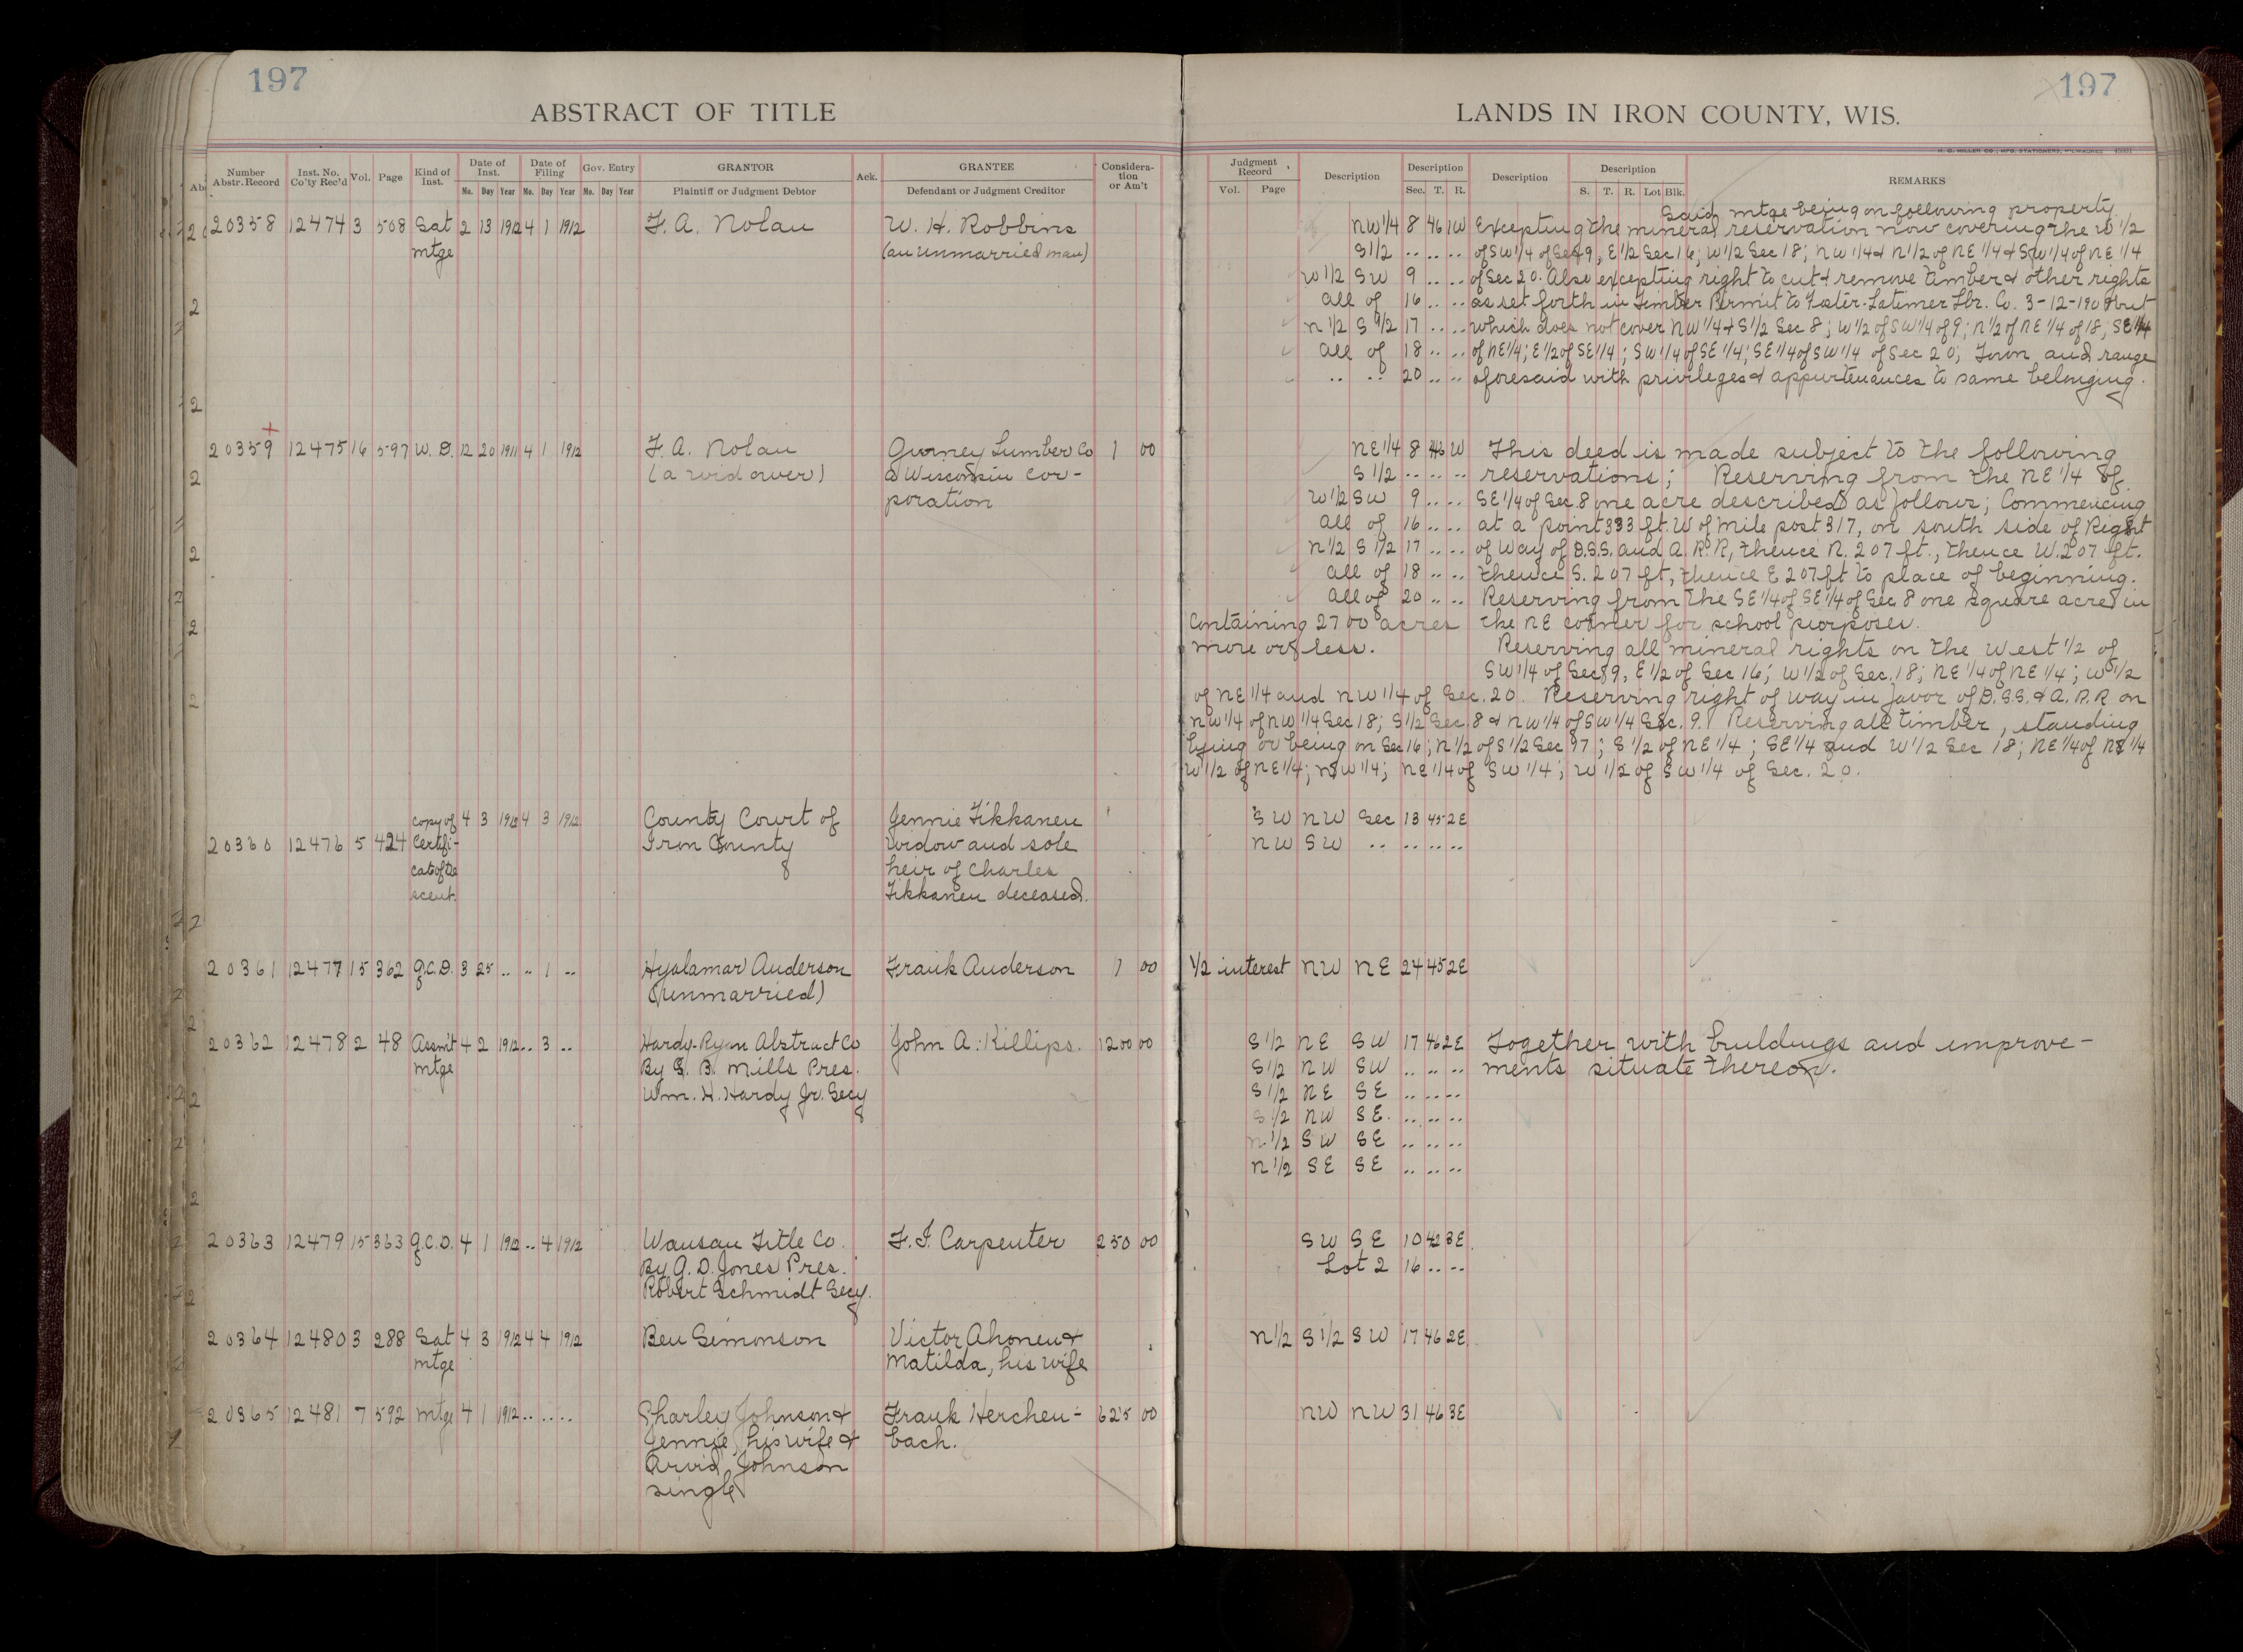 197
197
ABSTRACT OF TITLE
LANDS IN IRON COUNTY, WIS.
H. G. MILLER CO., MFG. STATIONERS, MILWAUKEE
Number Abstr. Record
Inst. No. Co'ty Rec'd
Vol.
Page
Kind of Inst.
Date of Inst.
Mo. Day Year
Date of Filing
Mo. Day Year
Gov. Entry
Mo. Day Year
GRANTOR
Plaintiff or Judgment Debtor
Ack.
GRANTEE
Defendant or Judgment Creditor
Considera-
tion
or Am't
Judgment Record
Vol. Page
Description
Description
Sec. T. R.
Description
Description
S. T. R. Lot Blk.
REMARKS
20358 12474 3 508 Sat 2 13 1912 4 1 1912 F. A. Nolan W. H. Robbins
mtge (an unmarried man)
Said mtge being on following property
NW 1/4 8 46 1W Excepting the mineral reservation now covering the W 1/2
S 1/2 .. .. .. of SW 1/4 of Sec 9, E 1/2 Sec 16; W 1/2 Sec 18; NW 1/4 & N 1/2 of NE 1/4 & SW 1/4 of NE 1/4
W 1/2 SW 9 .. .. of Sec 20. Also excepting right to cut & remove timber & other rights
all of 16 .. .. as set forth in Timber Permit to Foster-Latimer Lbr. Co. 3-12-190 but
N 1/2 S 1/2 17 .. .. which does not cover NW 1/4 & S 1/2 Sec 8; W 1/2 of SW 1/4 of 9; N 1/2 of NE 1/4 of 18; SE 1/4
all of 18 .. .. of NE 1/4; E 1/2 of SE 1/4; SW 1/4 of SE 1/4; SE 1/4 of SW 1/4 of Sec 20; Town and range
.. .. 20 .. .. aforesaid with privileges & appurtenances to same belonging.
20359 12475 16 597 W. D. 12 20 1911 4 1 1912 F. A. Nolan Gurney Lumber Co 1 00
(a widower) a Wisconsin cor-
poration
NE 1/4 8 46 W This deed is made subject to the following
S 1/2 .. .. .. reservations; Reserving from the NE 1/4 of
W 1/2 SW 9 .. .. SE 1/4 of Sec. 8 one acre described as follows; Commencing
all of 16 .. .. at a point 333 ft. W of mile post 317, on south side of Right
N 1/2 S 1/2 17 .. .. of Way of D.S.S. and A. R. R, thence N. 207 ft., thence W. 207 ft.
all of 18 .. .. thence S. 207 ft, thence E 207 ft to place of beginning.
all of 20 .. .. Reserving from the SE 1/4 of SE 1/4 of Sec. 8 one square acre in
Containing 2700 acres the NE corner for school purposes.
more or less. Reserving all mineral rights on the West 1/2 of
SW 1/4 of Sec 9, E 1/2 of Sec 16; W 1/2 of Sec. 18; NE 1/4 of NE 1/4; W 1/2
of NE 1/4 and NW 1/4 of Sec. 20. Reserving right of way in favor of D.S.S. & A. R. R on
NW 1/4 of NW 1/4 Sec 18; S 1/2 Sec. 8 & NW 1/4 of SW 1/4 Sec. 9. Reserving all timber, standing
lying or being on Sec 16; N 1/2 of S 1/2 Sec 17; S 1/2 of NE 1/4; SE 1/4 and W 1/2 Sec 18; NE 1/4 of NE 1/4
W 1/2 of NE 1/4; NW 1/4; NE 1/4 of SW 1/4; W 1/2 of SW 1/4 of Sec. 20.
copy of 4 3 1912 4 3 1912 County Court of Jennie Tikkanen SW NW Sec 13 45 2E
20360 12476 5 424 Certifi- Iron County widow and sole NW SW .. .. .. ..
cate of De heir of Charles
scent. Tikkanen deceased.
20361 12477 15 362 Q.C.D. 3 25 .. .. 1 .. Hyalamar Anderson Frank Anderson 1 00 1/2 interest NW NE 24 45 2E
(unmarried)
20362 12478 2 48 Assm't 4 2 1912 .. 3 .. Hardy-Ryan Abstract Co John A. Killips. 1200 00 S 1/2 NE SW 17 46 2E Together with buildings and improve-
mtge By S. B. Mills Pres. S 1/2 NW SW .. .. .. ments situate thereon.
Wm. H. Hardy Jr. Secy S 1/2 NE SE .. .. ..
S 1/2 NW SE. .. .. ..
N 1/2 SW SE .. .. ..
N 1/2 SE SE .. .. ..
20363 12479 15 363 Q.C.D. 4 1 1912 .. 4 1912 Wausau Title Co. F. I. Carpenter 250 00 SW SE 10 42 3E
By G. D. Jones Pres. Lot 2 16 .. ..
Robert Schmidt Secy.
20364 12480 3 288 Sat 4 3 1912 4 4 1912 Ben Simonson Victor Ahonen & N 1/2 S 1/2 SW 17 46 2E
mtge Matilda, his wife
20365 12481 7 592 mtge 4 1 1912 .. .. .. Charley Johnson & Frank Herchen- 625 00 NW NW 31 46 3E
Jennie, his wife & bach.
Arvid Johnson
single